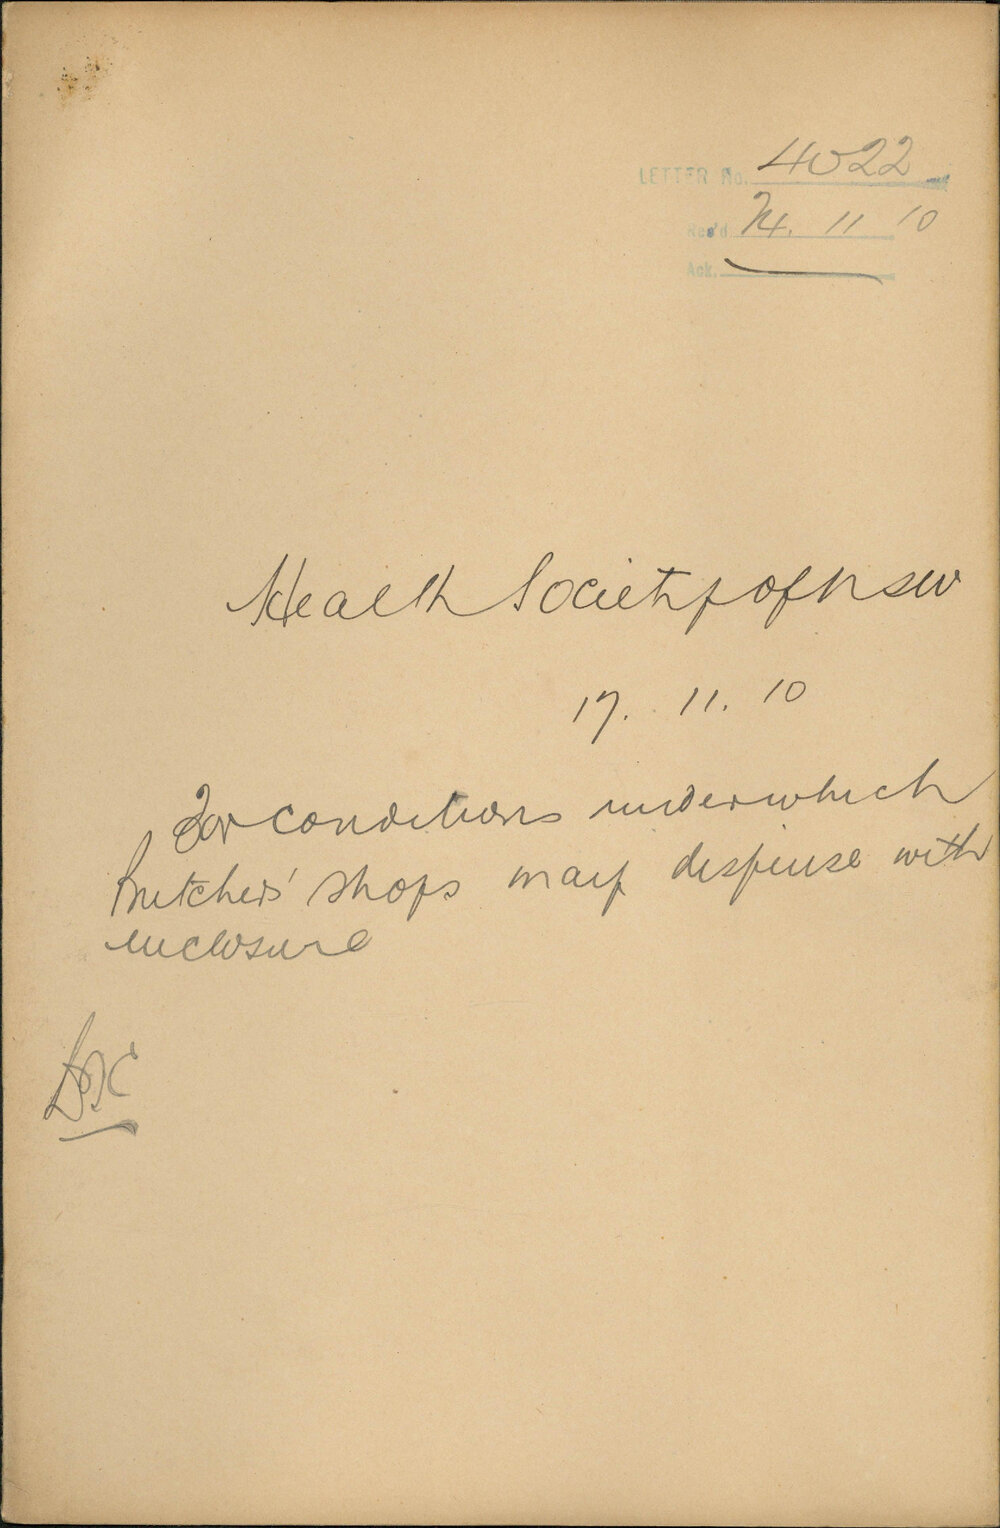 LETTER No. 4022
Rec'd 24. 11 10
Ack.
Health Society of NSW
17. 11. 10
For conditions under which
Butchers' shops may dispense with
enclosure